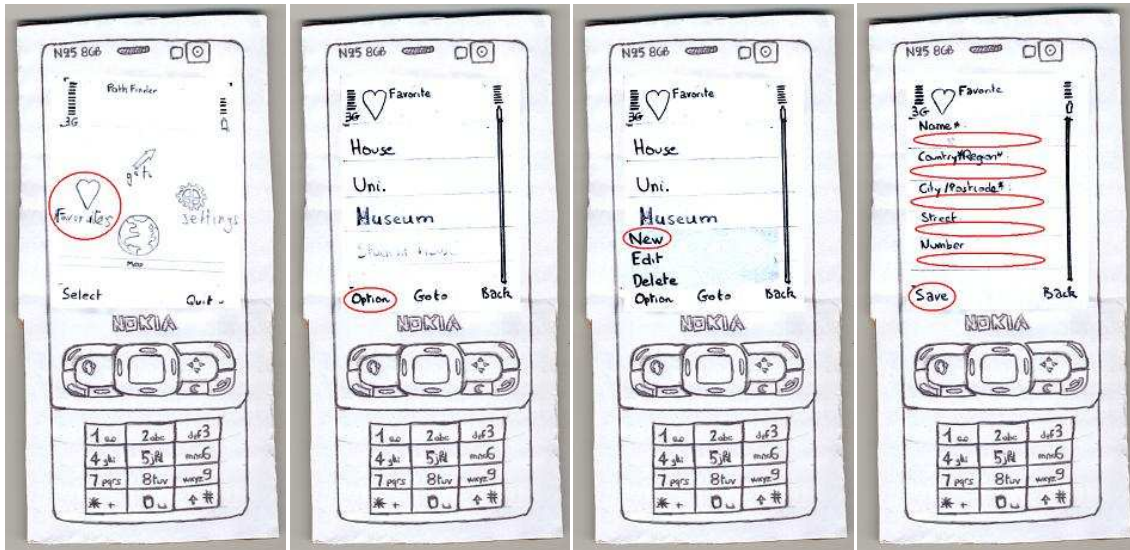 N95 8GB
Path Finder
3G
goto
Favorites
settings
Map
Select Quit
NOKIA
1 2abc def3
4ghi 5jkl mno6
7pqrs 8tuv wxyz9
* + 0 #
N95 8GB
Favorite
3G
House
Uni.
Museum
Option Goto Back
NOKIA
1 2abc def3
4ghi 5jkl mno6
7pqrs 8tuv wxyz9
* + 0 #
N95 8GB
Favorite
3G
House
Uni.
Museum
New
Edit
Delete
Option Goto Back
NOKIA
1 2abc def3
4ghi 5jkl mno6
7pqrs 8tuv wxyz9
* + 0 #
N95 8GB
Favorite
3G
Name*
Country*Region*:
City/Postcode*:
Street
Number
Save Back
NOKIA
1 2abc def3
4ghi 5jkl mno6
7pqrs 8tuv wxyz9
* + 0 #